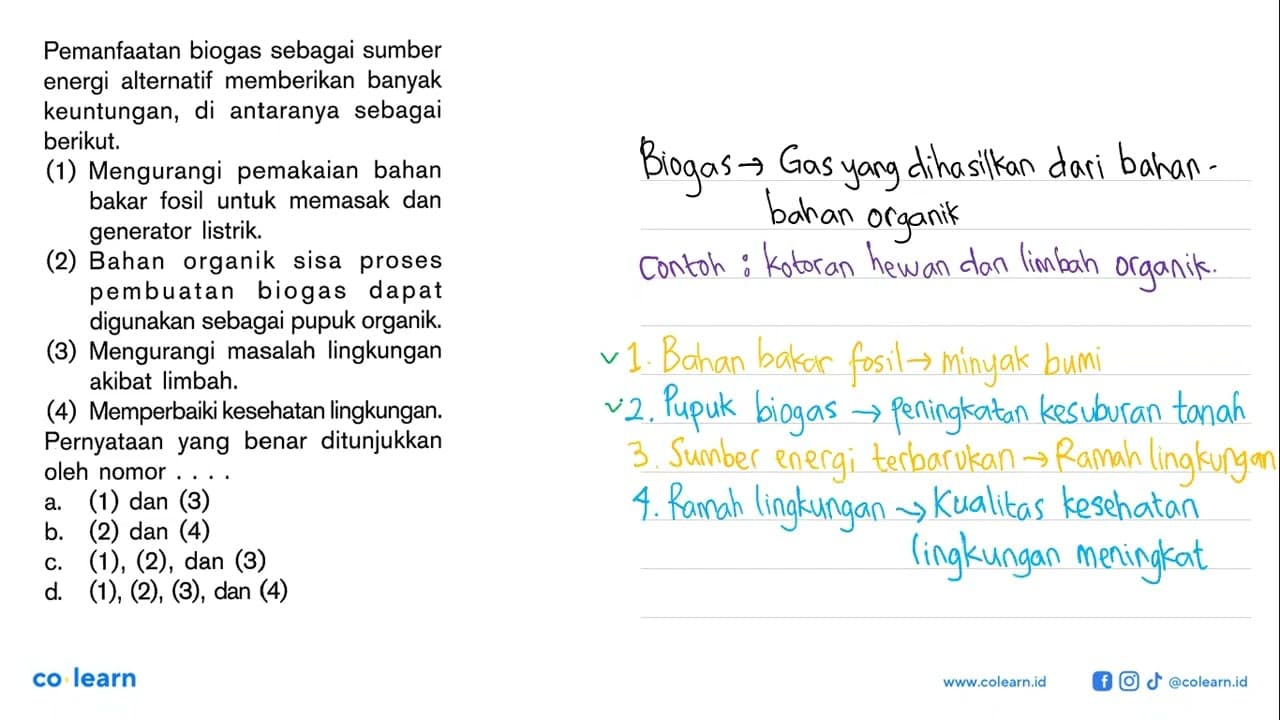 Pemanfaatan biogas sebagai sumber
energi alternatif memberikan banyak
keuntungan, di antaranya sebagai
berikut.
(1) Mengurangi pemakaian bahan
bakar fosil untuk memasak dan
generator listrik.
(2) Bahan organik sisa proses
pembuatan biogas dapat
digunakan sebagai pupuk organik.
(3) Mengurangi masalah lingkungan
akibat limbah.
(4) Memperbaiki kesehatan lingkungan.
Pernyataan yang benar ditunjukkan
oleh nomor . . . .
a. (1) dan (3)
b. (2) dan (4)
c. (1), (2), dan (3)
d. (1), (2), (3), dan (4)
Biogas → Gas yang dihasilkan dari bahan-
bahan organik
Contoh : kotoran hewan dan limbah organik.
✓ 1. Bahan bakar fosil → minyak bumi
✓ 2. Pupuk biogas → peningkatan kesuburan tanah
3. Sumber energi terbarukan → Ramah lingkungan
4. Ramah lingkungan → Kualitas kesehatan
lingkungan meningkat
co learn
www.colearn.id
@colearn.id